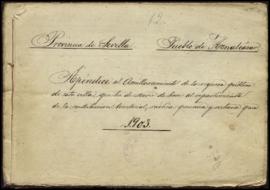 12.
Provincia de Sevilla Pueblo de
Apéndice al Amillaramiento de la riqueza pública
de esta villa, que ha de servir de base al repartimiento
de la contribucion territorial, rústica, pecuaria y urbana para
1903.